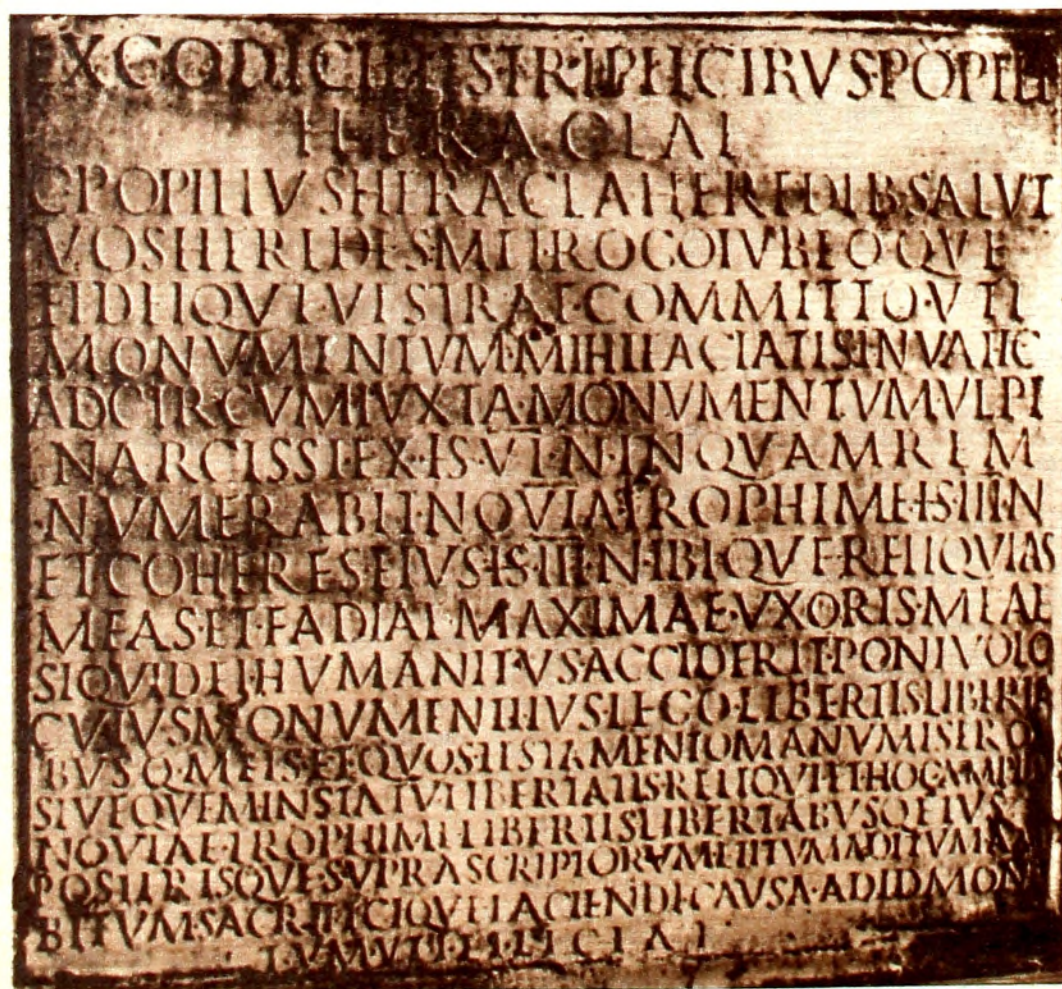 EX·CODICILLIS·TRIPLICIBVS·POPILI
HERACLAE
C·POPILIVS·HERACLA·HEREDIB·SALVT
VOS·HEREDES·MEI·ROGO·IVBEOQVE
FIDEIQVE·VESTRAE·COMMITTO·VTI
MONVMENTVM·MIHI·FACIATIS·IN·VATIC
AD·CIRCVM·IVXTA·MONVMENTVM·VLPI
NARCISSI·EX·HS·VI·N·IN·QVAM·REM
NVMERABIT·NOVIA·TROPHIME·HS·III·N
ET·COHERES·EIVS·HS·III·N·IBIQVE·RELIQVIAS
MEAS·ET·FADIAE·MAXIMAE·VXORIS·MEAE
SI·QVID·EI·HVMANITVS·ACCIDERIT·PONI·VOLO
CVIVS·MONVMENTI·IVS·LEGO·LIBERTIS·LIBERTA
BVSQ·MEIS·ET·QVOS·TESTAMENTO·MANVMISERO
SIVE·QVEM·IN·STATV·LIBERTATIS·RELIQVI·ET·HOC·AMPLIVS
NOVIAE·TROPHIME·LIBERTIS·LIBERTABVSQ·EIVS
POSTERISQVE·SVPRA·SCRIPTORVM·ET·ITVM·ADITVM·AM
BITVM·SACRIFICIQVE·FACIENDI·CAVSA·AD·ID·MONI
TVM·VTI·EI·LICEAT